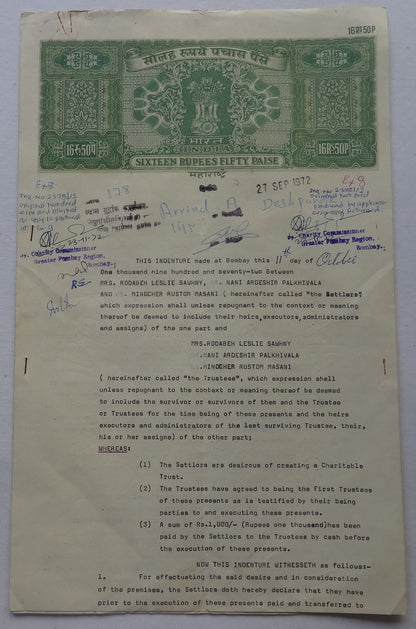 16RS50P
सोलह रूपये पचास पैसे
भारत
INDIA
16रु50प
16RS.50P
SIXTEEN RUPEES FIFTY PAISE
महाराष्ट्र
27 SEP 1972
178
Arvind A Deshp
Ex 9
original tendered
Ex 9
original tendered
23-11-72
Dy. Charity Commissioner
Greater Bombay Region,
Bombay.
Charity Commissioner
Greater Bombay Region,
THIS INDENTURE made at Bombay this 11th day of October
One thousand nine hundred and seventy-two Between
MRS. RODABEH LESLIE SAWHNY, NANI ARDESHIR PALKHIVALA
AND MINOCHER RUSTOM MASANI ( hereinafter called "the Settlors"
which expression shall unless repugnant to the context or meaning
thereof be deemed to include their heirs,executors,administrators
and assigns) of the one part and
MRS.RODABEH LESLIE SAWHNY
NANI ARDESHIR PALKHIVALA
MINOCHER RUSTOM MASANI
( hereinafter called "the Trustees", which expression shall
unless repugnant to the context or meaning thereof be deemed
to include the survivor or survivors of them and the Trustee
or Trustees for the time being of these presents and the heirs
executors and administrators of the last surviving Trustee, their,
his or her assigns) of the other part;
WHEREAS:
(1) The Settlors are desirous of creating a Charitable
Trust.
(2) The Trustees have agreed to being the First Trustees
of these presents as is testified by their being
parties to and executing these presents.
(3) A sum of Rs.1,000/- (Rupees one thousand)has been
paid by the Settlors to the Trustees by cash before
the execution of these presents.
NOW THIS INDENTURE WITNESSETH as follows:-
1. For effectuating the said desire and in consideration
of the premises, the Settlors doth hereby declare that they have
prior to the execution of these presents paid and transferred to